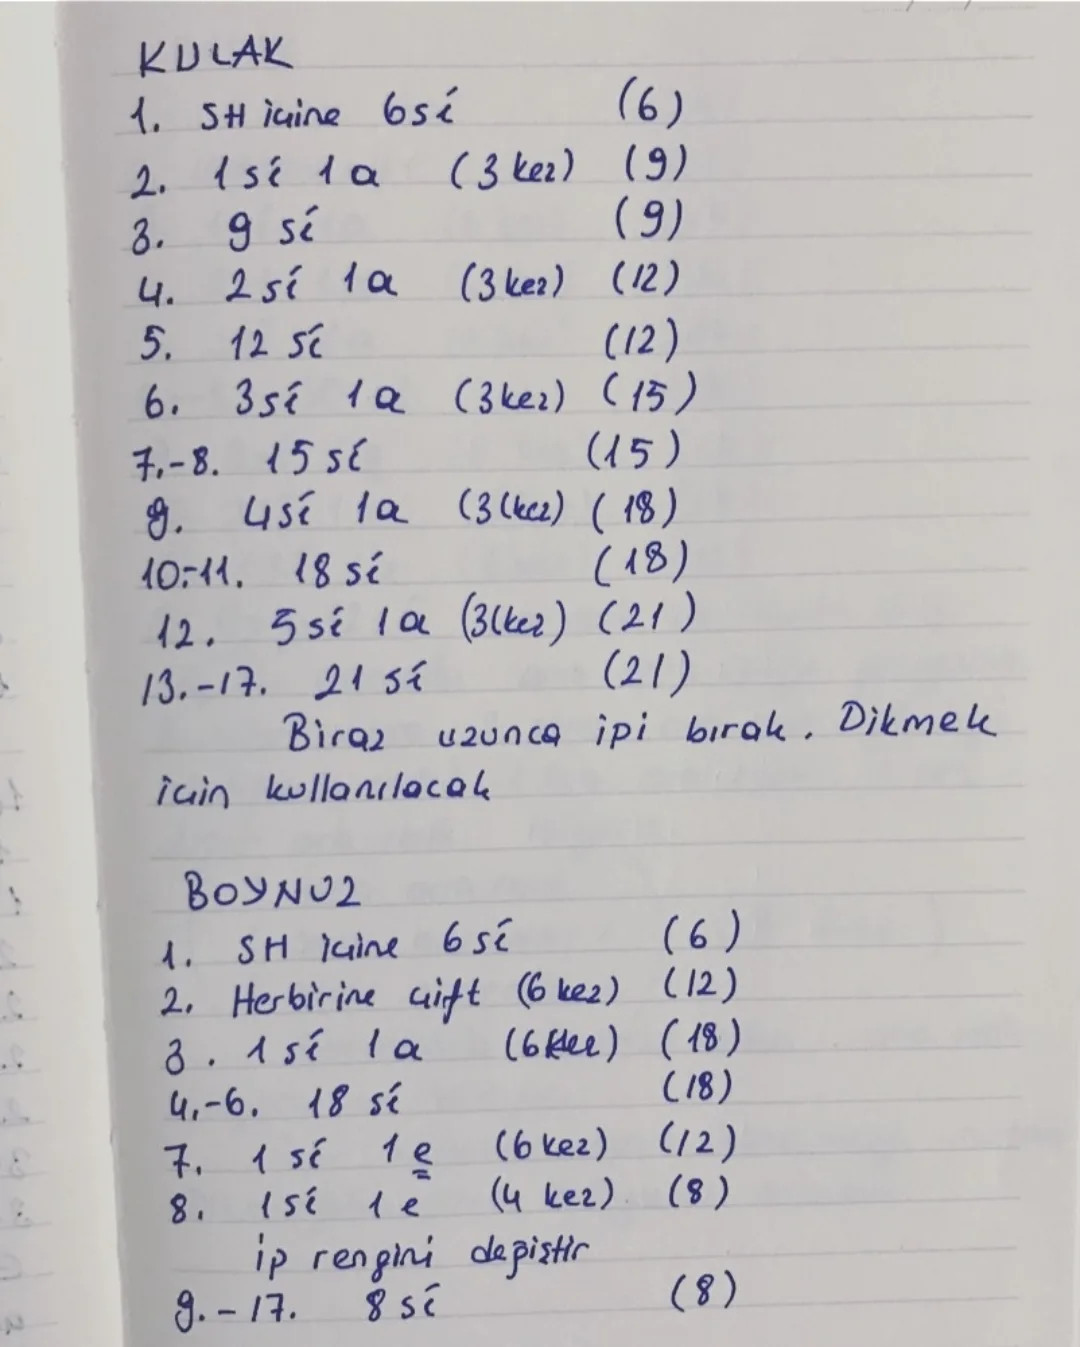 KULAK
1. SH içine 6si (6)
2. 1si 1a (3 kez) (9)
3. 9 si (9)
4. 2si 1a (3 kez) (12)
5. 12 si (12)
6. 3si 1a (3 kez) (15)
7.-8. 15 si (15)
9. 4si 1a (3 kez) (18)
10.-11. 18 si (18)
12. 5 si 1a (3 kez) (21)
13.-17. 21 si (21)
Biraz uzunca ipi bırak. Dikmek
için kullanılacak
BOYNUZ
1. SH içine 6 si (6)
2. Herbirine çift (6 kez) (12)
3. 1 si 1a (6 kez) (18)
4.-6. 18 si (18)
7. 1 si 1 e (6 kez) (12)
8. 1si 1 e (4 kez). (8)
ip rengini değiştir
9.-17. 8 si (8)